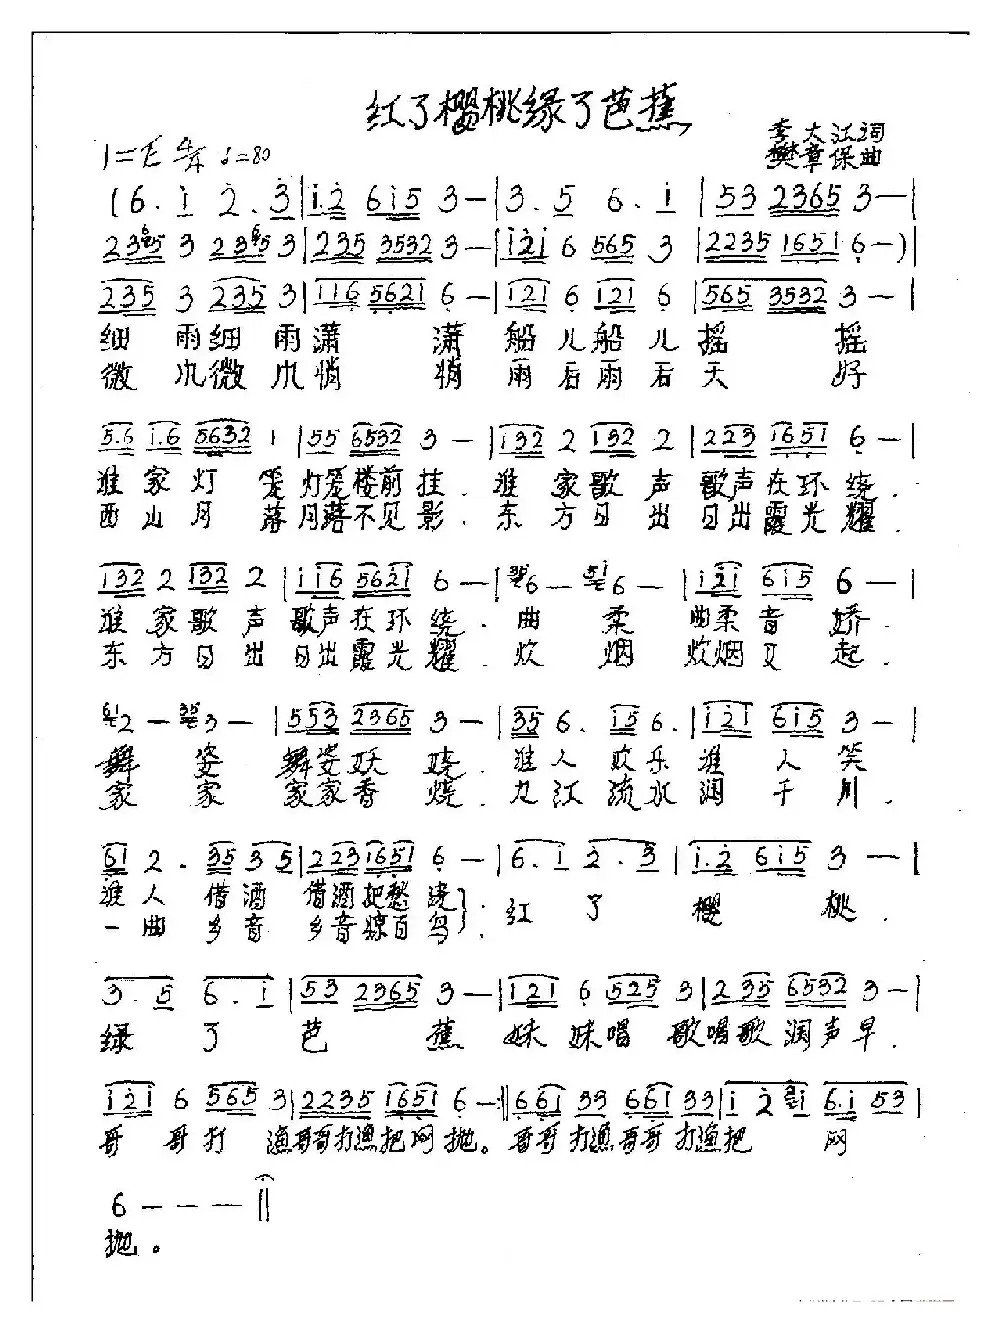 红了樱桃绿了芭蕉
李大江词
樊章保曲
1=E 4/4 ♩=80
(6. i 2. 3 | i.2 6i5 3 — | 3. 5 6. i | 53 2365 3 — |
235 3 235 3 | 235 3532 3 — | i2i 6 565 3 | 2235 1651 6 — )
235 3 235 3 | 116 5621 6 — | 121 6 121 6 | 565 3532 3 — |
细雨细雨潇潇船儿船儿摇摇
微爪微爪悄悄雨后雨后天好
5.6 1.6 5632 1 | 55 6532 3 — | 132 2 132 2 | 223 1651 6 — |
谁家灯笼灯笼楼前挂.谁家歌声歌声在环绕.
西山月落月落不见影.东方日出日出霞光耀.
132 2 132 2 | 116 5621 6 — | 6 — 6 — | i2i 6i5 6 — |
谁家歌声歌声在环绕.曲柔曲柔音娇.
东方日出日出霞光耀.炊烟炊烟又起.
2 — 3 — | 553 2365 3 — | 35 6. i5 6. | i2i 6i5 3 — |
舞姿舞姿妖娆.谁人欢乐谁人笑
家家家家香烧.九江流水润千川.
61 2. 35 35 | 223 1651 6 — | 6. i 2. 3 | i.2 6i5 3 — |
谁人借酒借酒把愁浇}.红了樱桃.
一曲乡音乡音惊百鸟}.
3. 5 6. i | 53 2365 3 — | 121 6 525 3 | 235 6532 3 — |
绿了芭蕉妹妹唱歌唱歌润声早.
i2i 6 565 3 | 2235 1651 6 — :‖ 661 33 661 33 | i 2 3i 6.i 53 |
哥哥打渔哥哥打渔把网抛。哥哥打渔哥哥打渔把网
6 — — — ‖
抛。